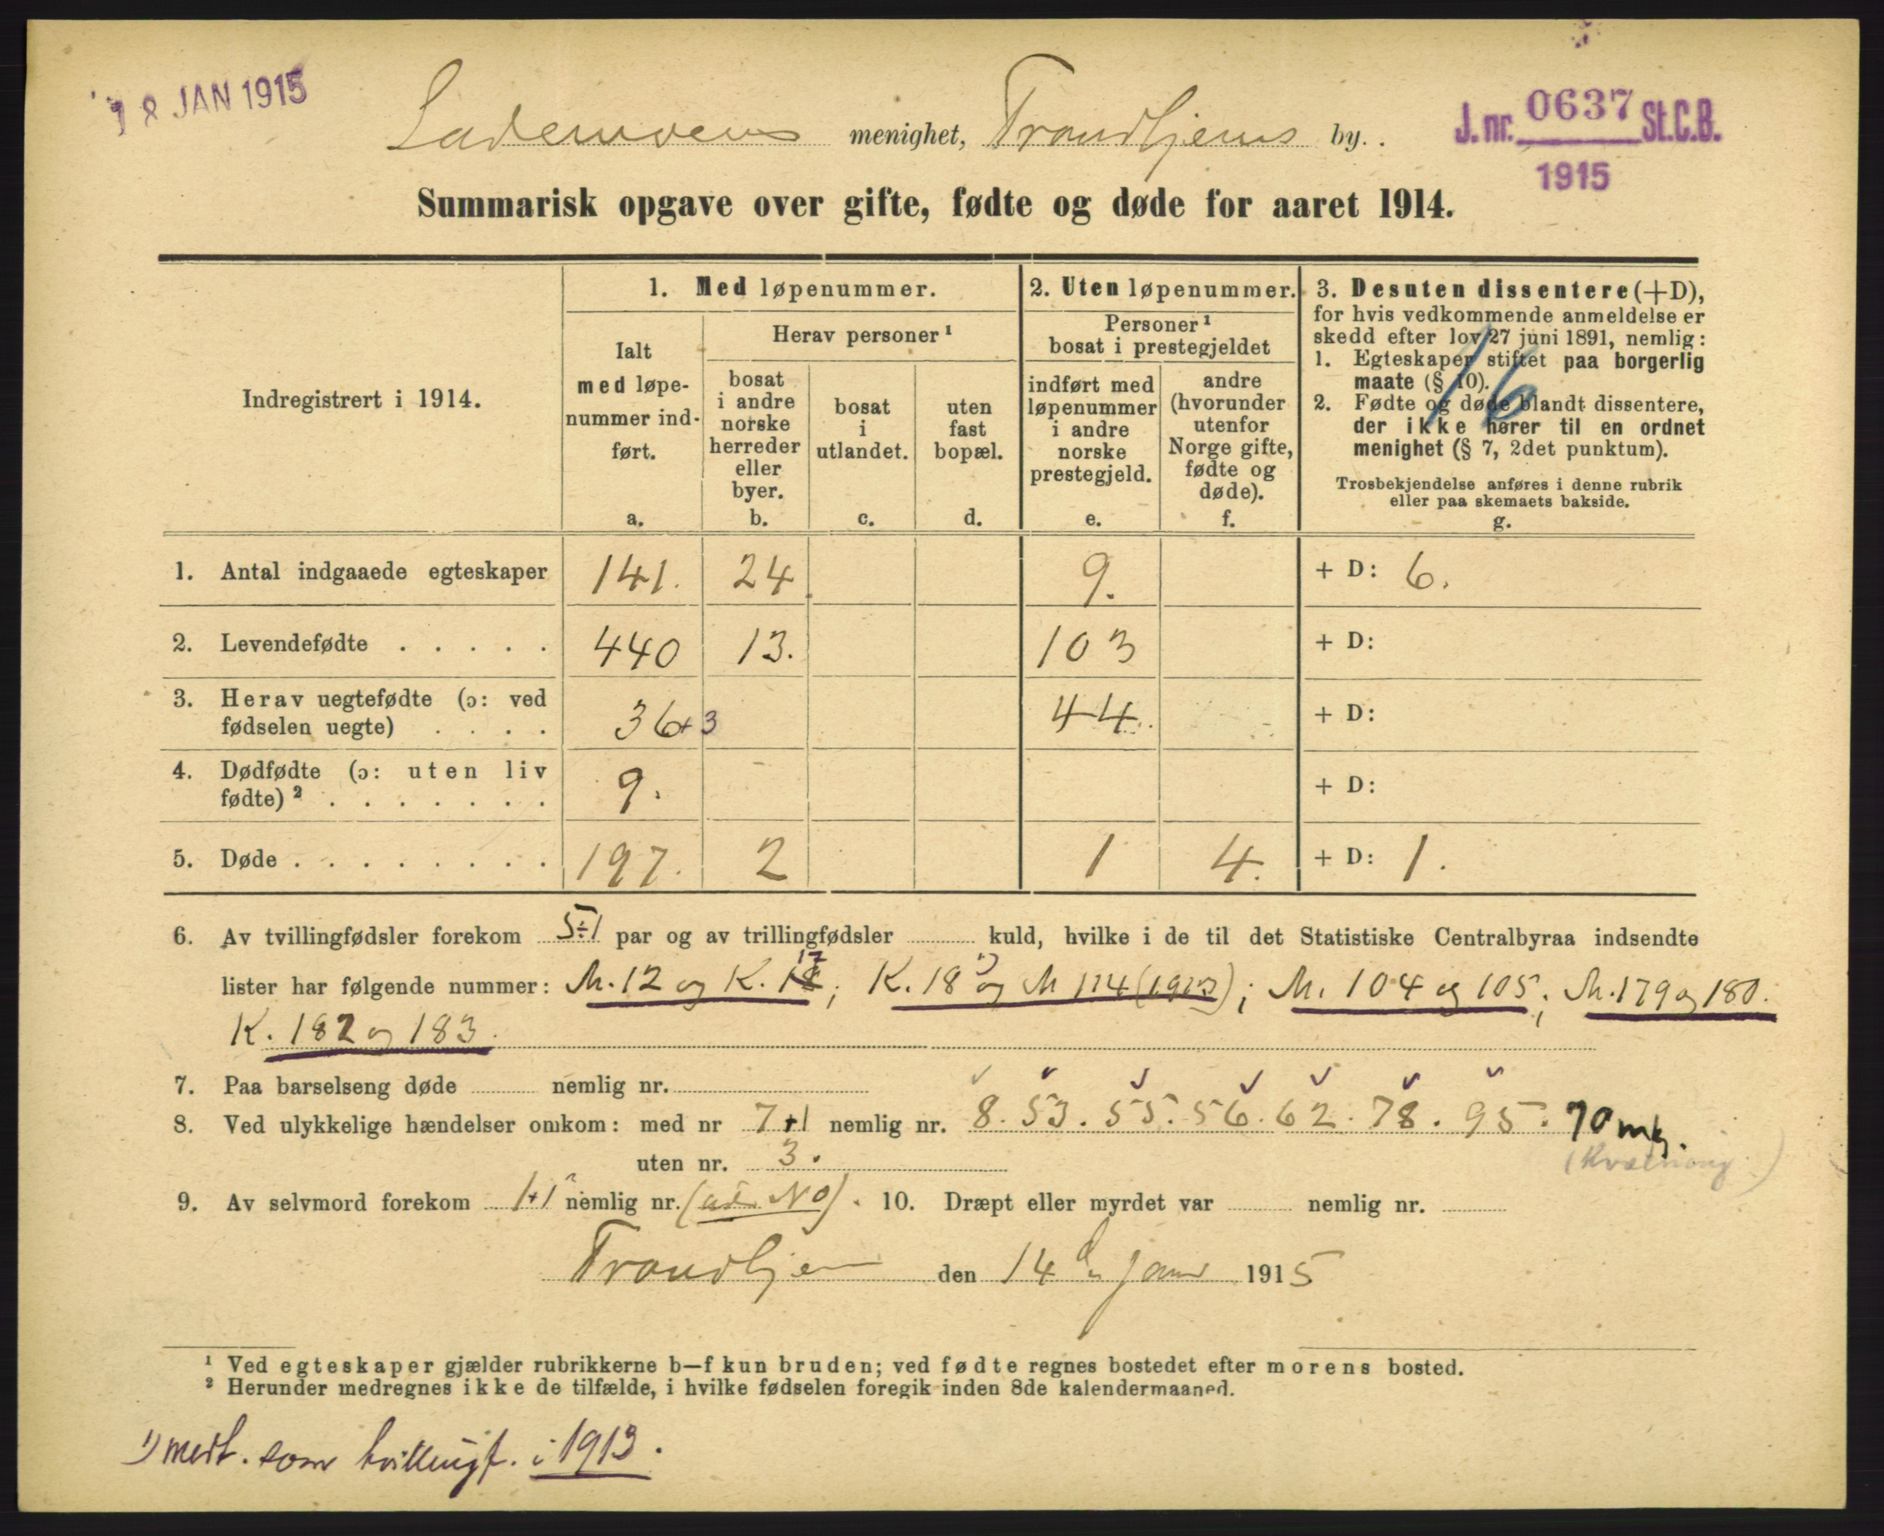 18 JAN 1915
Lademoens menighet, Trondhjems by.
J. nr. 0637 St.C.B.
1915
Summarisk opgave over gifte, fødte og døde for aaret 1914.
Indregistrert i 1914.
1. Med løpenummer.
Ialt med løpenummer indført.
a.
Herav personer ¹
bosat i andre norske herreder eller byer.
b.
bosat i utlandet.
c.
uten fast bopæl.
d.
2. Uten løpenummer.
Personer ¹ bosat i prestegjeldet
indført med løpenummer i andre norske prestegjeld.
e.
andre (hvorunder utenfor Norge gifte, fødte og døde).
f.
3. Desuten dissentere (+D),
for hvis vedkommende anmeldelse er
skedd efter lov 27 juni 1891, nemlig:
1. Egteskaper stiftet paa borgerlig
maate (§ 10).
2. Fødte og døde blandt dissentere,
der ikke hører til en ordnet
menighet (§ 7, 2det punktum).
Trosbekjendelse anføres i denne rubrik
eller paa skemaets bakside.
g.
16
1. Antal indgaaede egteskaper 141. 24 9. + D: 6.
2. Levendefødte . . . . . 440 13. 103 + D:
3. Herav uegtefødte (ɔ: ved
fødselen uegte) . . . . 36+3 44. + D:
4. Dødfødte (ɔ: uten liv
fødte) ² . . . . . . . 9. + D:
5. Døde . . . . . . . . 197. 2 1 4. + D: 1.
6. Av tvillingfødsler forekom 5÷1 par og av trillingfødsler kuld, hvilke i de til det Statistiske Centralbyraa indsendte
lister har følgende nummer: M. 12 og K. 17; K. 18 ¹) og M 114 (1913); M. 104 og 105; M. 179 og 180.
K. 182 og 183.
7. Paa barselseng døde nemlig nr.
8. Ved ulykkelige hændelser omkom: med nr 7+1 nemlig nr. 8. 53. 55. 56. 62. 78. 95. 70 mk.
uten nr. 3.
9. Av selvmord forekom 1+1 nemlig nr. (ut. No). 10. Dræpt eller myrdet var nemlig nr.
Trondhjem den 14 de Jan 1915
¹ Ved egteskaper gjælder rubrikkerne b—f kun bruden; ved fødte regnes bostedet efter morens bosted.
² Herunder medregnes ikke de tilfælde, i hvilke fødselen foregik inden 8de kalendermaaned.
¹) medt. som tvillingf. i 1913.